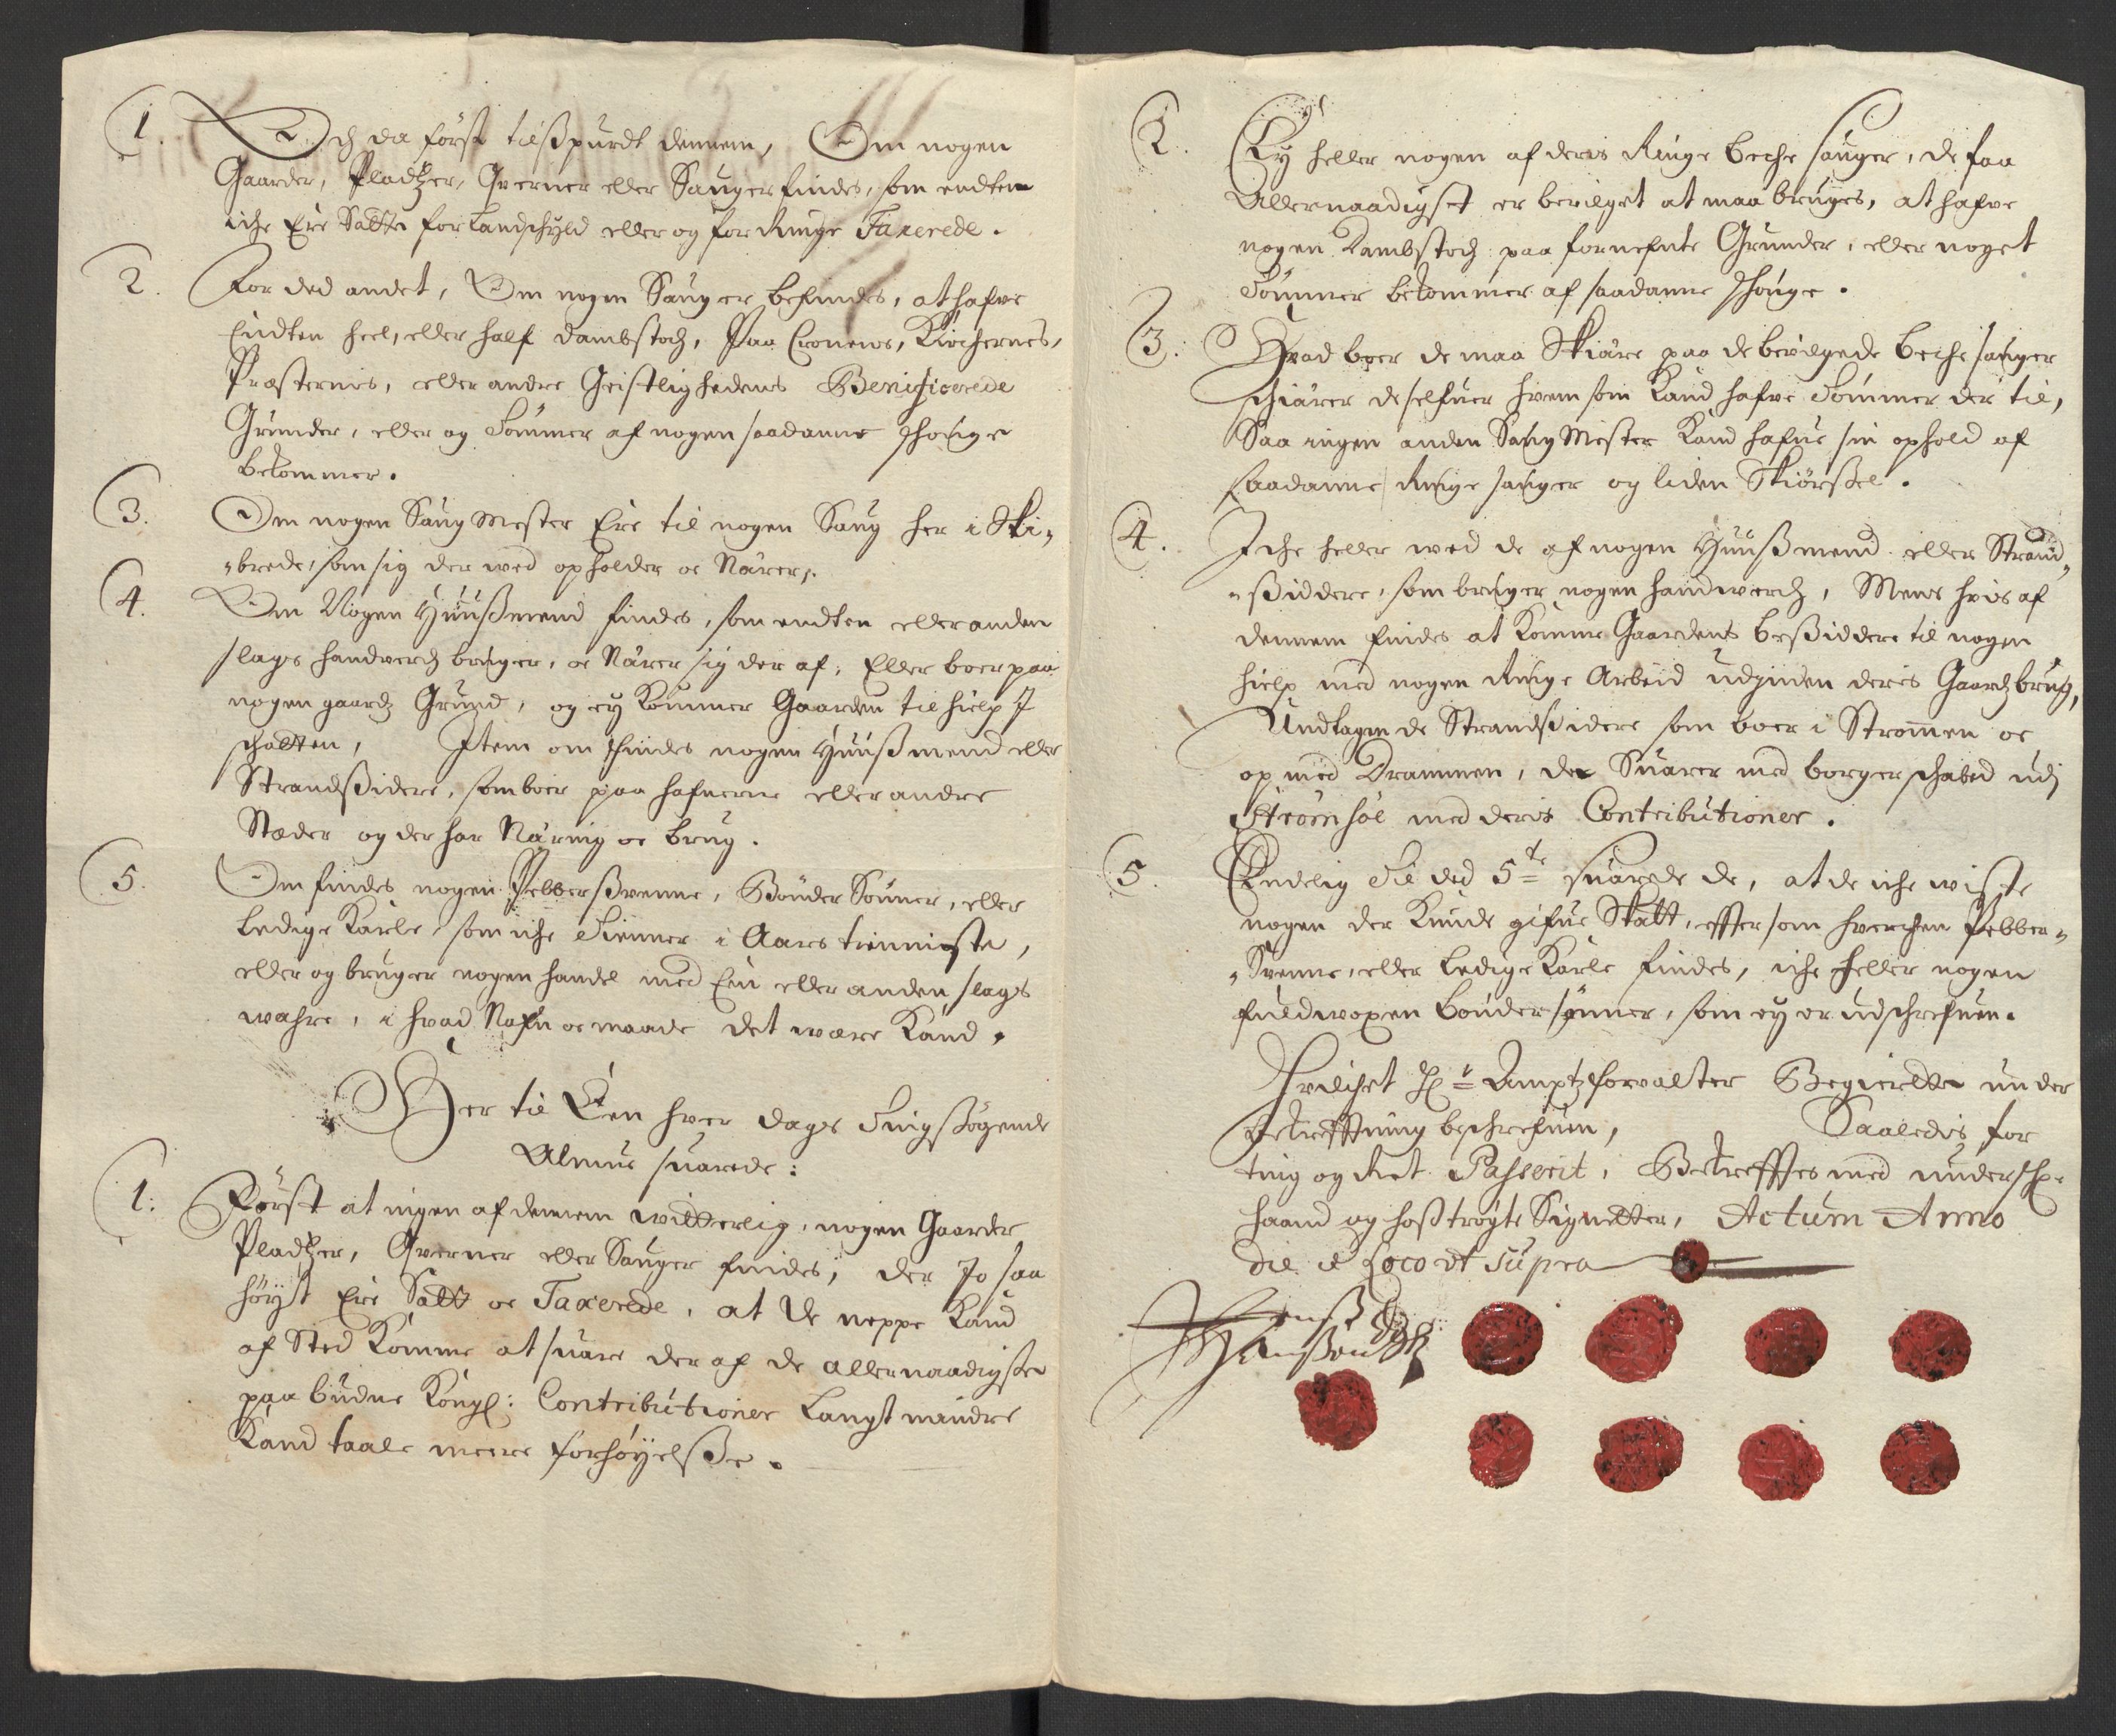 1. Och da först tilspurdt dennem, Om nogen
Gaarder, Pladtzer, Qverner eller Sauger findes, som endten
iche Ere Satte for Landschyld eller og for Ringe Taxerede.
2. For ded andet, Om nogen Sauger befindes, at hafve
Endten heel, eller half dambstoch, Paa Cronens, Kirchernes,
Præsternis, eller andre Geistlighedens Benificerede
Grunder, eller og Tömmer af nogen saadanne Schouge
bekommer.
3. Om nogen Saug Mester Ere til nogen Saug her i Ski„
„brede, som sig der wed opholder oc Nærer.
4. Om Nogen Huusmend findes, som endten eller anden
slags handverch bruger, oc Nærer sig der af, Eller boer paa
nogen gaards Grund, og ey kommer Gaarden til hielp J
schatten, Item om findes nogen Huusmend eller
Strandsidere, som boer paa hafnerne eller andre
Stæder og der har Næring oc brug.
5. Om findes nogen Pebbersvenne, Bönder Sönner, eller
Ledige Karle, som iche Tienner i Aars tienniste,
eller og bruger nogen handel med Een eller anden slags
wahre, i hvad Nafn oc maade det være Kand.
Her til Een hver dags Tingsögende
Almue svarede:
1: Först at ingen af dennem witterlig, nogen Gaarder
Pladtzer, Qverner eller Sauger findes, der Jo saa
höyst Ere Satt oc Taxerede, at de neppe Kand
af Sted Komme at svare der af de allernaadigste
paabudne Kongl: Contributioner Langt mindre
Kand taale meere forhöyelsse.
2. Ey heller nogen af deris Ringe beche sauger, de faa
Allernaadigst er bevilget at maa bruges, at hafve
nogen Dambstoch paa fornefnte Grunder, eller noget
Tömmer bekommer af saadanne Schouge.
3: Hvad boer de maa Skiære paa de bevilgede beche sauger
schiærer de selfver hvem som Kand hafve Tömmer der til,
Saa ingen anden Saug Mester Kand hafve sin ophold af
saadanne Ringe sauger og liden Skiörssel.
4. Iche heller wed de af nogen Huusmend eller Strand„
„siddere, som bruger nogen handwerch, Mens hvis af
dennem findes at Komme Gaardens besiddere til nogen
hielp med nogen Ringe Arbeid udjnden deris Gaards brug,
Undtagen de Strandsidere som boer i Strömen oc
op med Drammen, der Svarer med borgerschabed udj
Strömsöe med deris Contributioner.
5. Endelig Til ded 5te svarede de, at de iche wiste
nogen der Kunde gifve Skatt, effter som hverchen Pebber„
„Svenne, eller Ledige Karle findes, iche heller nogen
fuldwoxen bönder sönner, som ey er udschrefven.
Hvilchet Hr Amptzforvalter Begierede under
bekreffttning beschrefven, Saaledis for
ting og Ret Passerit, Bekrefftes med underschr.
haand og hoströgte Signetter, Actum Anno
die et Loco ut supra